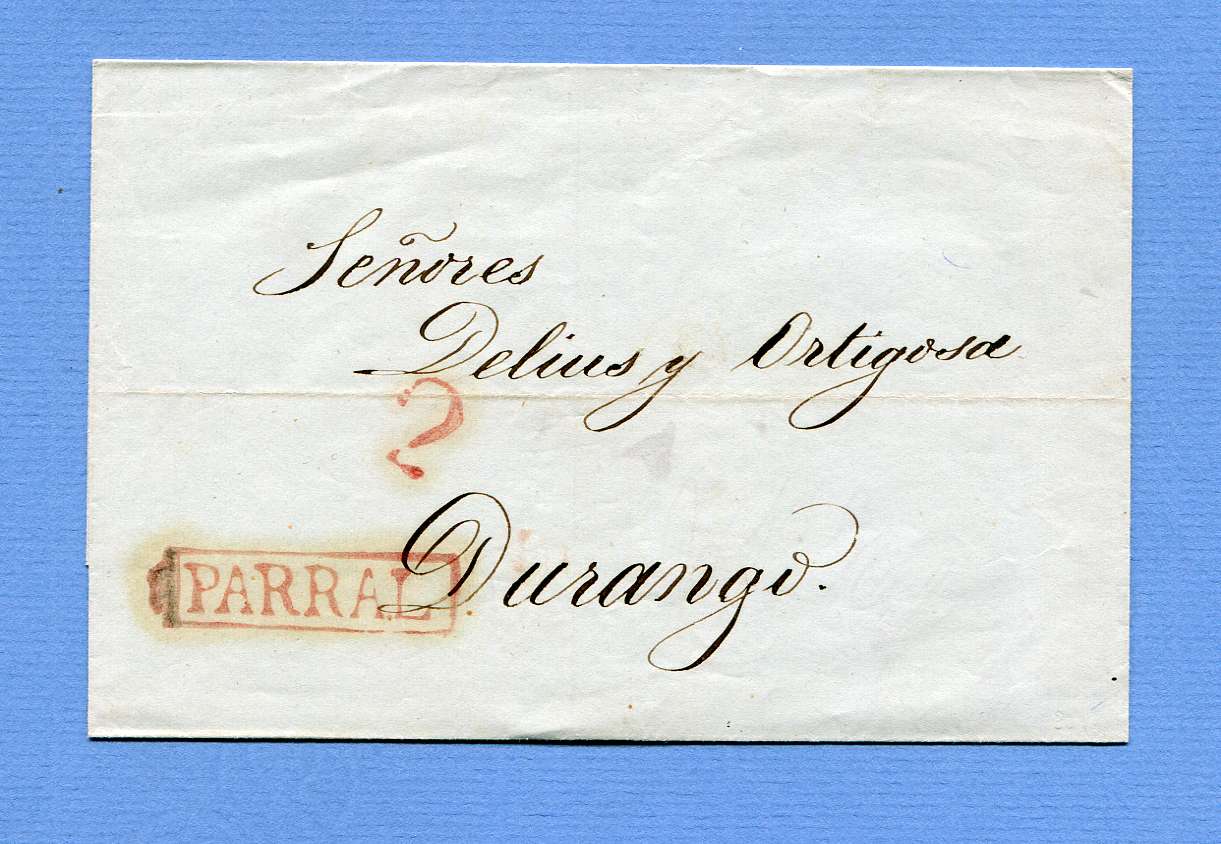 Señores
Delius y Ortigosa
2
Durango.
PARRAL